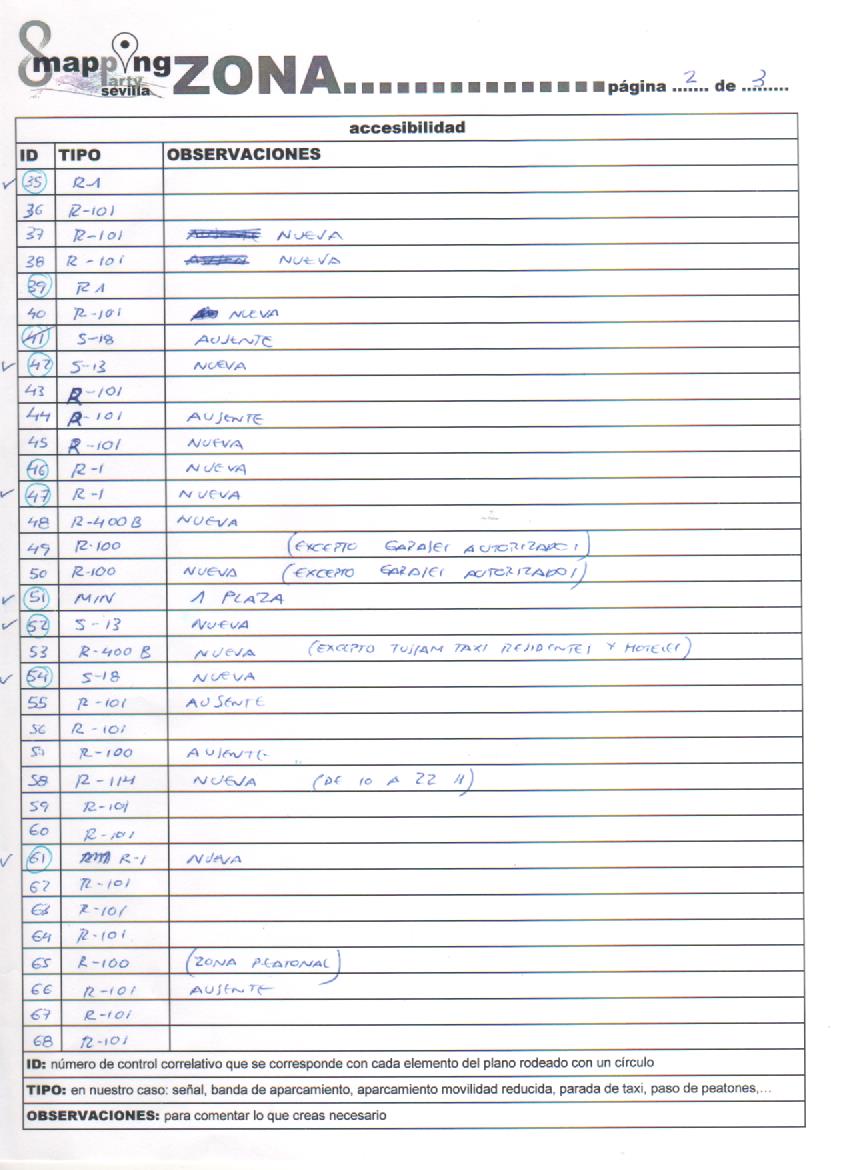 8 mapping party sevilla ZONA................ página 2 de 3
accesibilidad
ID TIPO OBSERVACIONES
35 R-1
36 R-101
37 R-101 NUEVA
38 R-101 NUEVA
39 R1
40 R-101 NUEVA
41 S-18 AUSENTE
42 S-13 NUEVA
43 R-101
44 R-101 AUSENTE
45 R-101 NUEVA
46 R-1 NUEVA
47 R-1 NUEVA
48 R-400 B NUEVA
49 R-100 (EXCEPTO GARAJES AUTORIZADOS)
50 R-100 NUEVA (EXCEPTO GARAJES AUTORIZADOS)
51 MIN 1 PLAZA
52 S-13 NUEVA
53 R-400 B NUEVA (EXCEPTO TUSSAM TAXI RESIDENTES Y HOTELES)
54 S-18 NUEVA
55 R-101 AUSENTE
56 R-101
57 R-100 AUSENTE
58 R-114 NUEVA (DE 10 A 22 H)
59 R-101
60 R-101
61 R-1 NUEVA
62 R-101
63 R-101
64 R-101
65 R-100 (ZONA PEATONAL)
66 R-101 AUSENTE
67 R-101
68 R-101
ID: número de control correlativo que se corresponde con cada elemento del plano rodeado con un círculo
TIPO: en nuestro caso: señal, banda de aparcamiento, aparcamiento movilidad reducida, parada de taxi, paso de peatones,...
OBSERVACIONES: para comentar lo que creas necesario